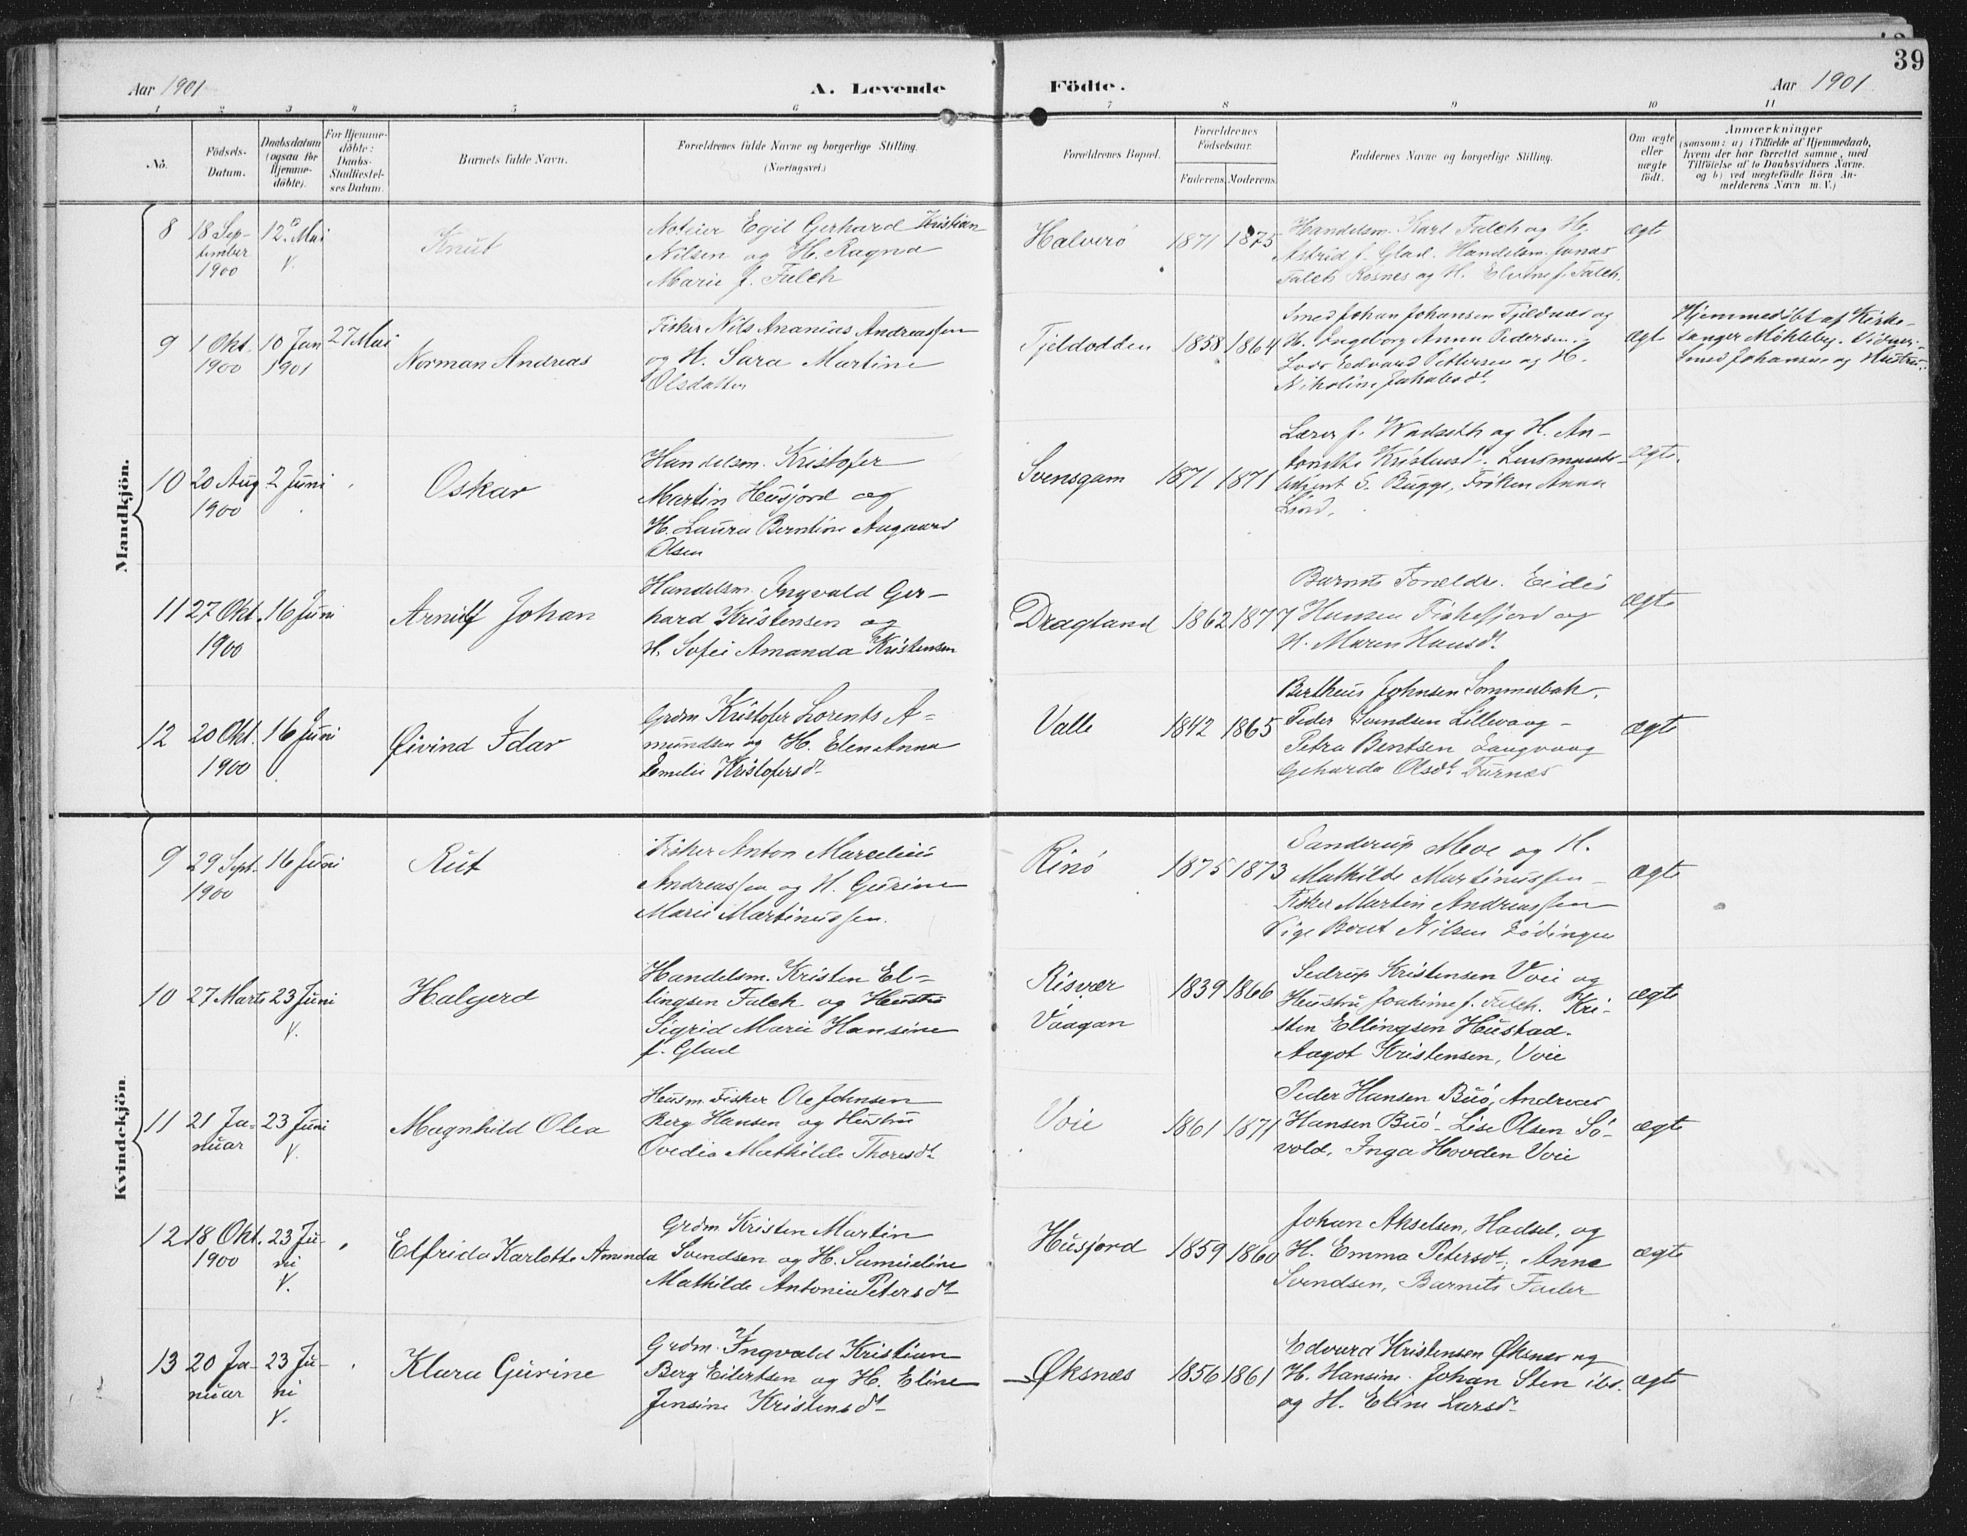 39
Aar 1901
A. Levende
Födte.
Aar 1901
1 2 3 4 5 6 7 8 9 10 11
No.
Födsels-
Datum.
Daabsdatum
(ogsaa for
Hjemme-
döbte).
For Hjemme-
döbte:
Daabs-
Stadfæstel-
ses Datum.
Barnets fulde Navn.
Forældrenes fulde Navne og borgerlige Stilling.
(Næringsvei.)
Forældrenes Bopæl.
Forældrenes
Födselsaar.
Faderens. Moderens.
Faddernes Navne og borgerlige Stilling.
Om ægte
eller
uægte
födt.
Anmærkninger
(saasom: a) i Tilfælde af Hjemmedaab,
hvem der har forrettet samme, med
Tilföielse af to Daabsvidners Navne.
og b) ved uægtefödte Börn An-
melderens Navn m. V.)
Mandkjön.
8 18 Sep-
tember
1900
12 Mai
V.
Knut
Notier Egil Gerhard Kristian
Nilsen og H. Ragna
Marie f. Falch
Halverö
1871 1875
Handelsm. Karl Falch og H.
Astrid f. Glad. Handelsm. Jonas
Falch Rosnes og H. f. Falch.
ægte
9 1 Okt.
1900
10 Jan
1901
27 Mai
Norman Andreas
Fisker Nils Ananias Andreassen
og H. Sara Martine
Olsdatter
Fjeldodden
1858 1864
Smed Johan Johansen Fjeldnæs og
H. Ingeborg Anna Pedersen.
Lods Edvard Pettersen og H.
Nikoline Jakobsdt.
ægte
Hjemmedöbt af Kirke-
sanger Möhleby. Vidner:
Smed Johansen og Hustru.
10 20 Aug
1900
2 Juni
Oskar
Handelsm. Kristofer
Martin Husjord og
H. Laura Berntine Aagaard
Olsen
Svensgam
1871 1871
Lærer J. Wadseth og H. An-
tonette Kristensd. Lensmands-
betjent S. Bugge, Fröken Anna
ægte.
11 27 Okt.
1900
16 Juni
Arnilf Johan
Handelsm. Ingvald Ger-
hard Kristensen og
H. Sofie Amanda Kristensen
Dragland
1862 1877
Barnets Forældre. Eidis
Hansen Fiskefjord og
H. Maren Hansdt.
ægte
12 20 Okt.
1900
16 Juni
Øivind Idar
Grdm. Kristofer Lorents A-
mundsen og H. Elen Anna
Emelie Kristofersdt.
Valle
1842 1865
Bertheus Johnsen Sommerbak.
Peder Svendsen Lillevaag -
Petra Bentsen Langvaag
Geharda Olsdt. Furnæs
ægte
Kvindekjön.
9 29 Sept.
1900
16 Juni
Rut
Fisker Anton Marcelius
Andreassen og H. Gurine
Marie Martinussen.
Rinö
1875 1873
Sanderup Meve og H.
Mathilde Martinussen -
Fisker Martin Andreassen
Pige Beret Nilsen Lödingen
ægte
10 27 Marts
23 Juni
V.
Halgerd
Handelsm. Kristen El-
lingsen Falch og Hustru
Sigrid Marie Hansine
f. Glad
Risvær
Vaagan
1839 1866
Sedrup Kristensen Voie og
Hustru Joakime f. Falch. Kri-
sten Ellingsen Hustad.
Aagot Kristensen, Voie
ægte
11 21 Ja-
nuar
23 Juni
V.
Magnhild Olea
Husm. Fisker Ole Johnsen
Berg Hansen og Hustru
Ovedia Mathilde Thoresdt.
Voie
1861 1871
Peder Hansen Buö, Andreas
Hansen Buö. Lise Olsen Sö-
vold, Inga Hovden Voie
ægte
12 18 Okt.
1900
23 Ju-
ni
V.
Elfrida Karlotte Aminda
Grdm Kristen Martin
Svendsen og H. Samueline
Mathilde Antonia Petersdt.
Husjord
1859 1860
Johan Akselsen, Hadsel, og
H. Emma Petersdt., Anna
Svendsen, Barnets Fader
ægte
13 20 Ja-
nuar
23 Ju-
ni
V.
Klara Gurine
Grdm. Ingvald Kristian
Berg Eilertsen og H. Eline
Jensine Kristensdt.
Øksnæs
1856 1861
Edvard Kristensen Øksnæs og
H. Hansine. Johan Sten ibd.
og H. Eline Larsdt.
ægte